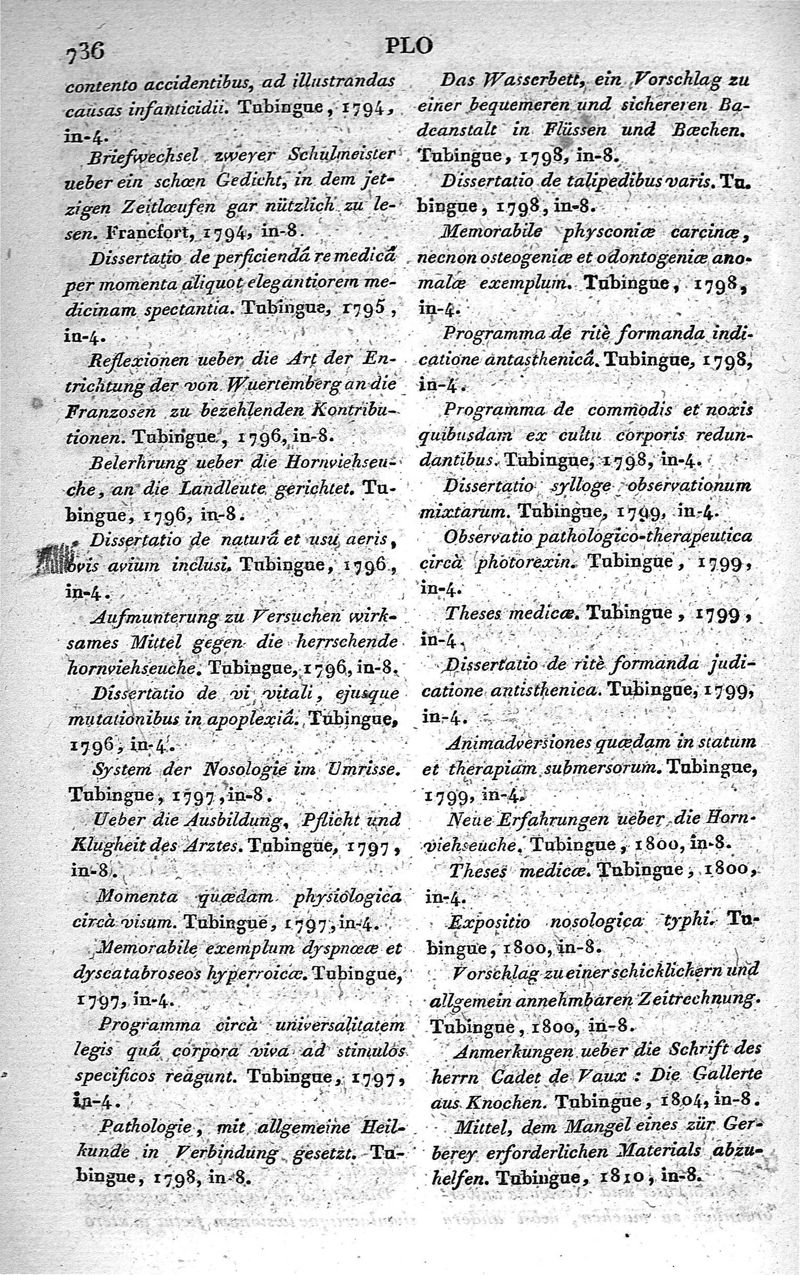 736
PLO
contento accidentibus, ad illustrandas
causas infanticidii. Tubingue, 1794,
in-4.
Briefwechsel zweyer Schulmeister
ueber ein schœn Gedicht, in dem jet-
zigen Zeitlœufen gar nützlich zu le-
sen. Francfort, 1794, in-8.
Dissertatio de perficiendâ re medicâ
per momenta aliquot elegantiorem me-
dicinam spectantia. Tubingue, 1795,
in-4.
Reflexionen ueber die Art der En-
trichtung der von Wuertemberg an die
Franzosen zu bezehlenden Kontribu-
tionen. Tubingue, 1796, in-8.
Belerhrung ueber die Hornviehseu-
che, an die Landleute gerichtet. Tu-
bingue, 1796, in-8.
Dissertatio de naturâ et usu aeris,
ovis avium inclusi. Tubingue, 1796,
in-4.
Aufmunterung zu Versuchen wirk-
sames Mittel gegen die herrschende
hornviehseuche. Tubingue, 1796, in-8.
Dissertatio de vi vitali, ejusque
mutationibus in apoplexiâ. Tubingue,
1796, in-4.
System der Nosologie im Umrisse.
Tubingue, 1797, in-8.
Ueber die Ausbildung, Pflicht und
Klugheit des Arztes. Tubingue, 1797,
in-8.
Momenta quædam physiologica
circà visum. Tubingue, 1797, in-4.
Memorabile exemplum dyspnœæ et
dyscatabroseos hyperroicæ. Tubingue,
1797, in-4.
Programma circà universalitatem
legis quâ corpora viva ad stimulos
specificos reagunt. Tubingue, 1797,
in-4.
Pathologie, mit allgemeine Heil-
kunde in Verbindung gesetzt. Tu-
bingue, 1798, in-8.
Das Wasserbett, ein Vorschlag zu
einer bequemeren und sichereren Ba-
deanstalt in Flüssen und Bæchen.
Tubingue, 1798, in-8.
Dissertatio de talipedibus varis. Tu.
bingue, 1798, in-8.
Memorabile physconiæ carcinæ,
necnon osteogeniæ et odontogeniæ ano-
malæ exemplum. Tubingue, 1798,
in-4.
Programma de ritè formanda indi-
catione antasthenicâ. Tubingue, 1798,
in-4.
Programma de commodis et noxis
quibusdam ex cultu corporis redun-
dantibus. Tubingue, 1798, in-4.
Dissertatio sylloge observationum
mixtarum. Tubingue, 1799, in-4.
Observatio pathologico-therapeutica
circà photorexin. Tubingue, 1799,
in-4.
Theses medicæ. Tubingue, 1799,
in-4.
Dissertatio de ritè formanda judi-
catione antisthenica. Tubingue, 1799,
in-4.
Animadversiones quædam in statum
et therapiam submersorum. Tubingue,
1799, in-4.
Neue Erfahrungen ueber die Horn-
viehseuche. Tubingue, 1800, in-8.
Theses medicæ. Tubingue, 1800,
in-4.
Expositio nosologica typhi. Tu-
bingue, 1800, in-8.
Vorschlag zu einer schicklichern und
allgemein annehmbaren Zeitrechnung.
Tubingue, 1800, in-8.
Anmerkungen ueber die Schrift des
herrn Cadet de Vaux : Die Gallerte
aus Knochen. Tubingue, 1804, in-8.
Mittel, dem Mangel eines zür Ger-
berey erforderlichen Materials abzu-
helfen. Tubingue, 1810, in-8.